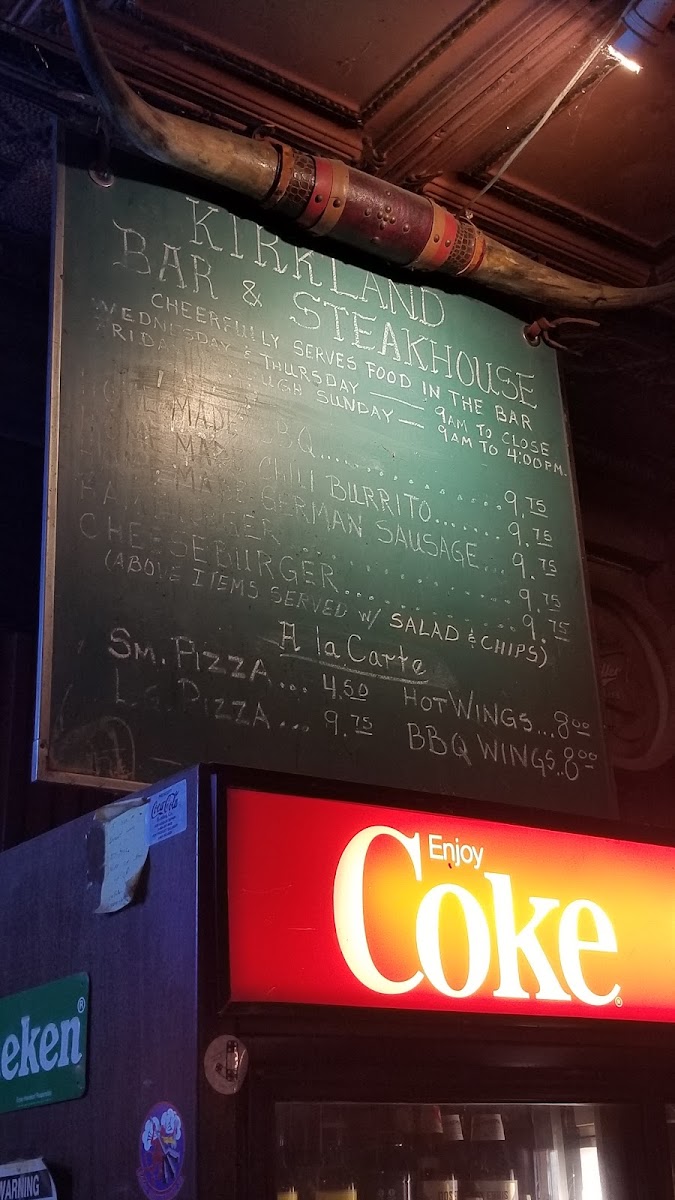 KIRKLAND
BAR & STEAKHOUSE
CHEERFULLY SERVES FOOD IN THE BAR
WEDNESDAY & THURSDAY —— 9AM TO CLOSE
FRIDAY THROUGH SUNDAY — 9AM TO 4:00PM.
HOME MADE B.B.Q.................9.75
HOME MADE CHILI BURRITO........9.75
HOME MADE GERMAN SAUSAGE...9.75
HAMBURGER...................9.75
CHEESEBURGER...............9.75
(ABOVE ITEMS SERVED W/ SALAD & CHIPS)
A la Carte
SM. PIZZA... 4.50 HOT WINGS...8.00
LG. PIZZA... 9.75 BBQ WINGS..8.00
Coca-Cola
Enjoy
Coke
eken®
WARNING